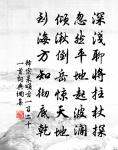 深淺聊將拄杖探
忽然平地起波瀾
傾湫倒岳驚天地
到海方知徹底乾
釋宗杲頌古一百二十
一首詞典網集